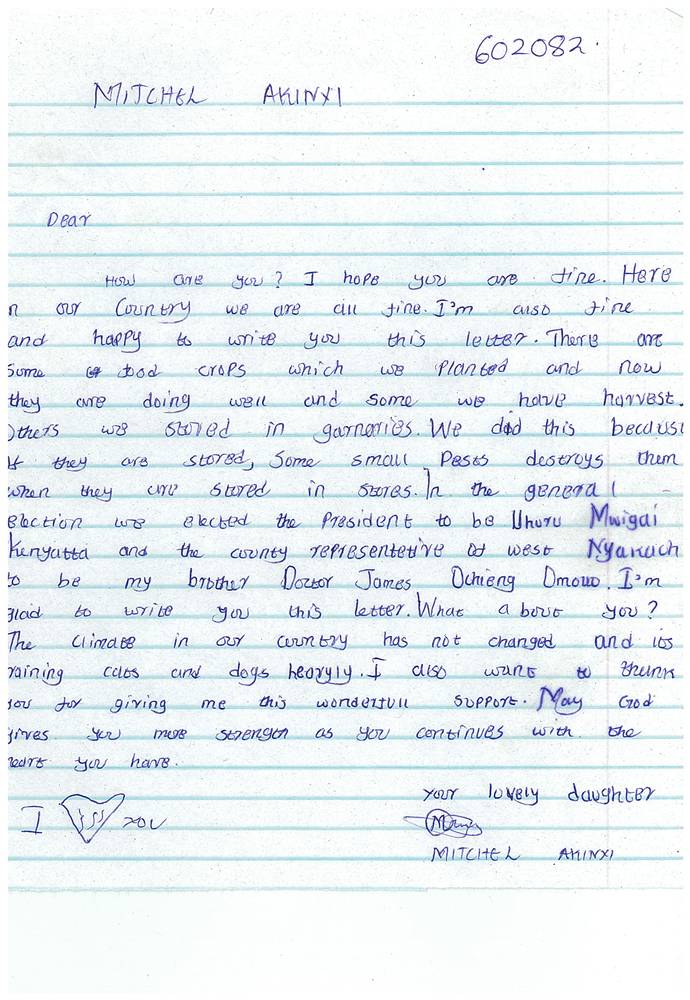 602082.
MITCHEL AKINXI
Dear
How are you? I hope you are fine. Here
n our Country we are all fine. I'm also fine
and happy to write you this letter. There are
some food crops which we planted and now
they are doing well and some we have harvest.
thers we stored in garneries. We did this becaus
if they are stored, Some small Pests destroys them
when they are stored in stores. In the general
election we elected the President to be Uhuru Mwigai
Kenyatta and the county representetive at west Nyakach
to be my brother Doctor James Ochieng Omowo. I'm
glad to write you this letter. What about you?
The climate in our country has not changed and its
raining cats and dogs heavyly. I also want to thank
you for giving me this wonderfull support. May God
gives you more strength as you continues with the
heart you have.
your lovely daughter
I you
MITCHEL AKINXI